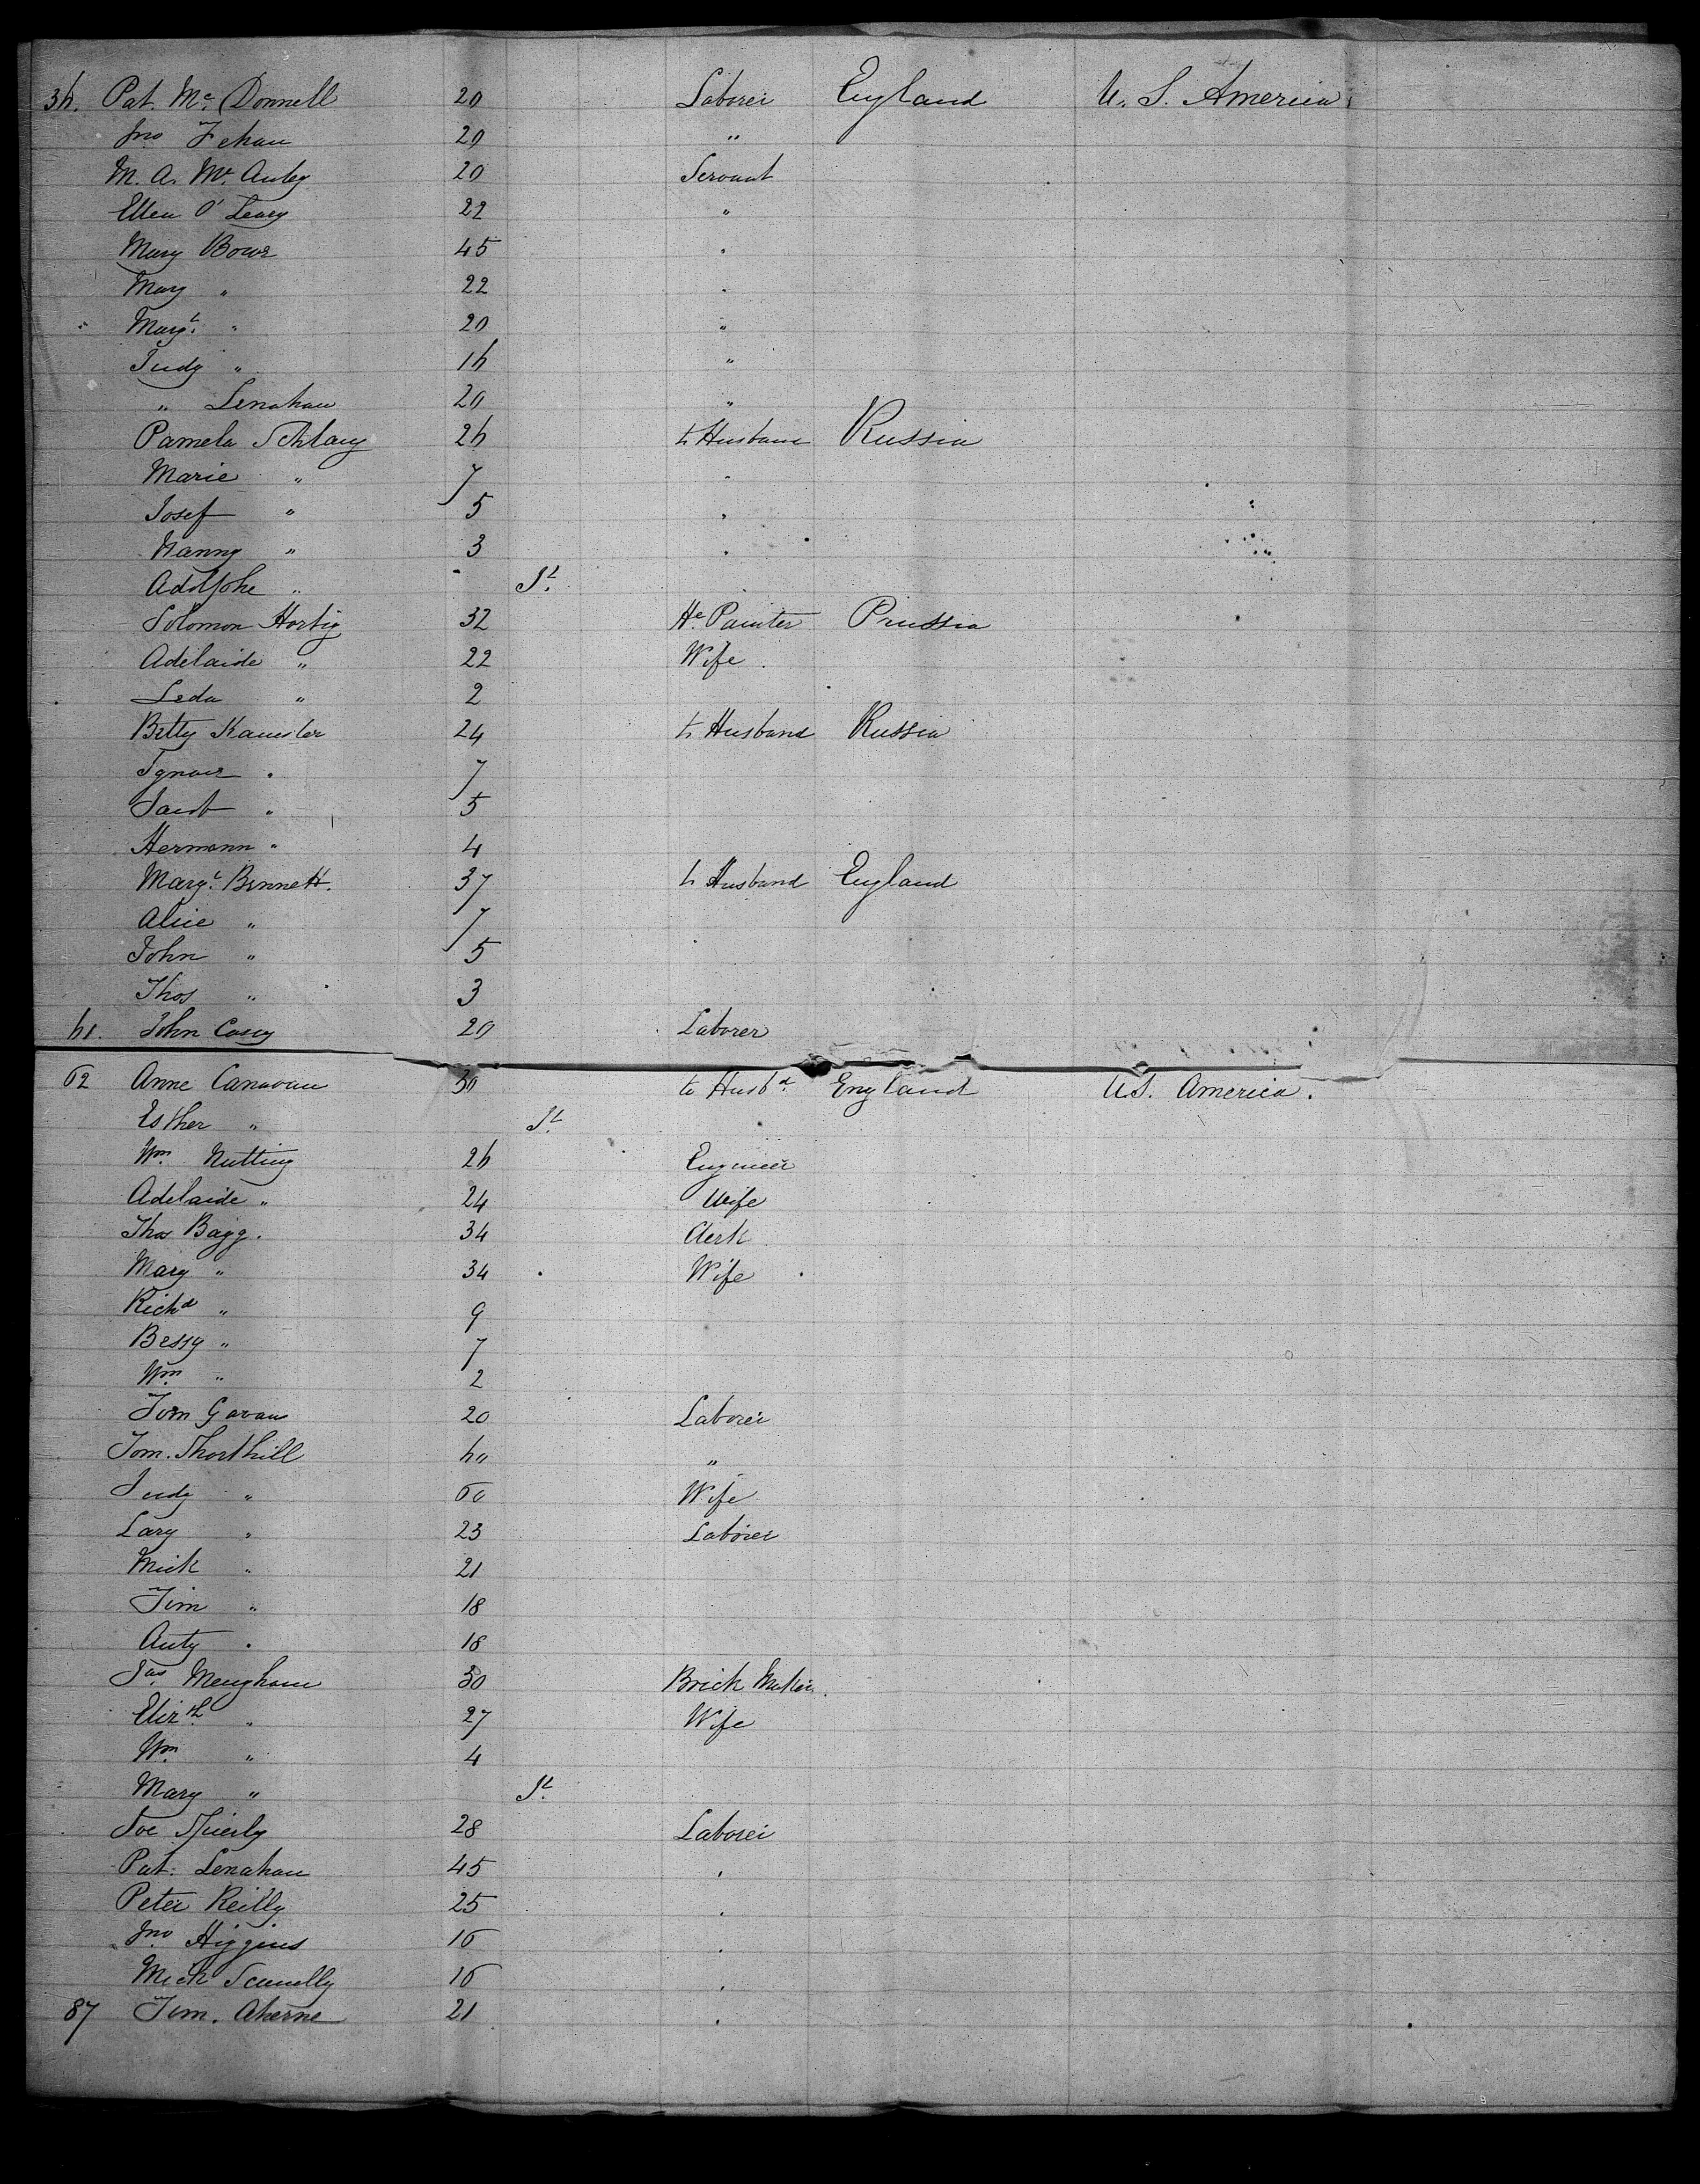 36. Pat Mc Donnell 20 Laborer England U. S. America
Jno Fehan 20 "
M. A. Mc Auley 20 Servant
Ellen O'Leary 22 "
Mary Bowe 45 "
Mary " 22 "
Margt " 20 "
Judy " 16 "
" Lenahan 20 "
Pamela Schlang 26 to Husband Russia
Marie " 7 "
Josef " 5 "
Nanny " 3 "
Adolphe " St
Solomon Hortig 32 He Painter Prussia
Adelaide " 22 Wife
Leda " 2
Betty 24 to Husband Russia
Ignace " 7
Jacob " 5
Hermann " 4
Margt Bennett. 37 to Husband England
Alice " 7
John " 5
Thos " 3
61. John Casey 20 Laborer
62 Anne Canavan 30 to Husbd England U.S. America.
Esther " St
Wm Nutting 26 Engineer
Adelaide " 24 Wife
Thos Bagg. 34 Clerk
Mary " 34 Wife
Richd " 9
Bessy " 7
Wm " 2
Tom Gavan 20 Laborer
Tom. Thorthill 60 "
Judy " 60 Wife
Lary " 23 Laborer
Mick " 21
Tim " 18
Anty " 18
Jas Meugham 30 Brick Maker.
Elizth " 27 Wife
Wm " 4
Mary " St
Joe 28 Laborer
Pat. Lenahan 45 "
Peter Reilly 25 "
Jno Higgins 16 "
Mich Scanelly 16 "
87 Tim. Aherne 21 "